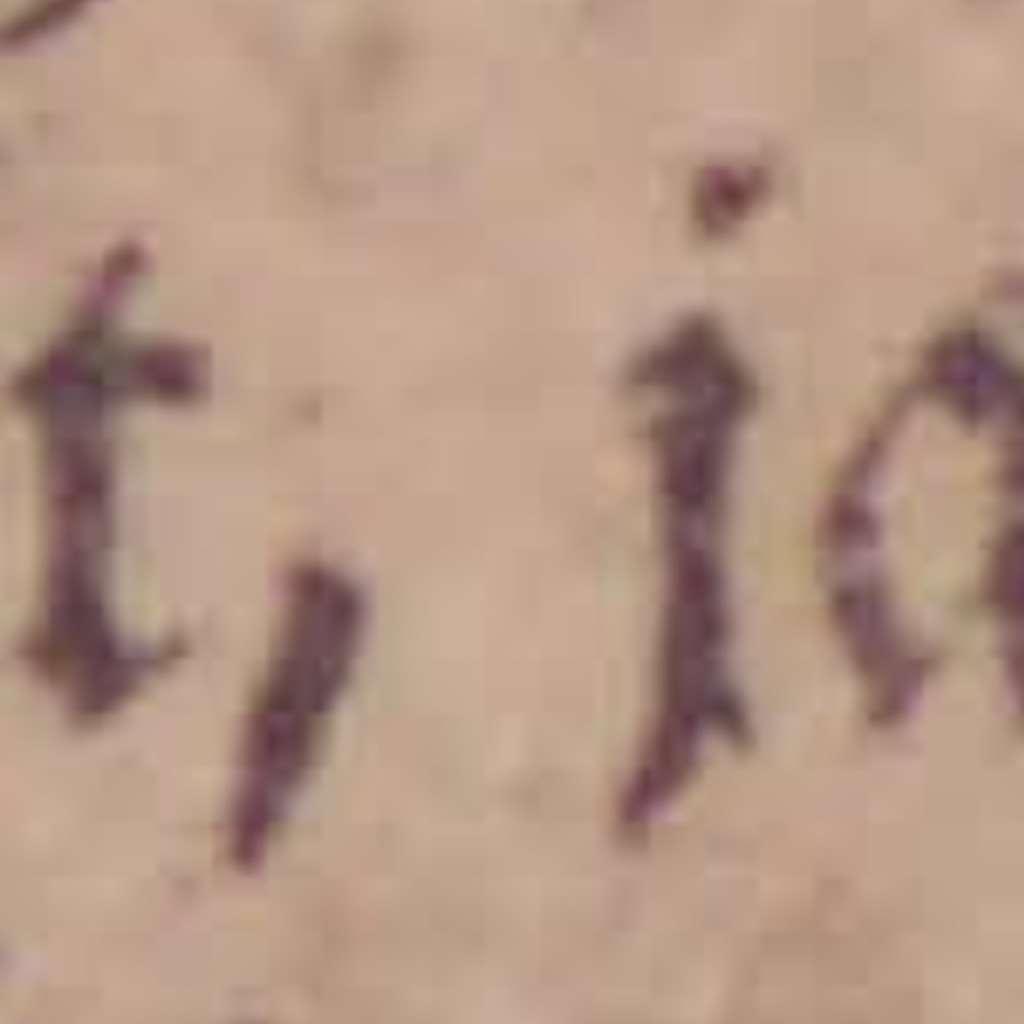 t, ja